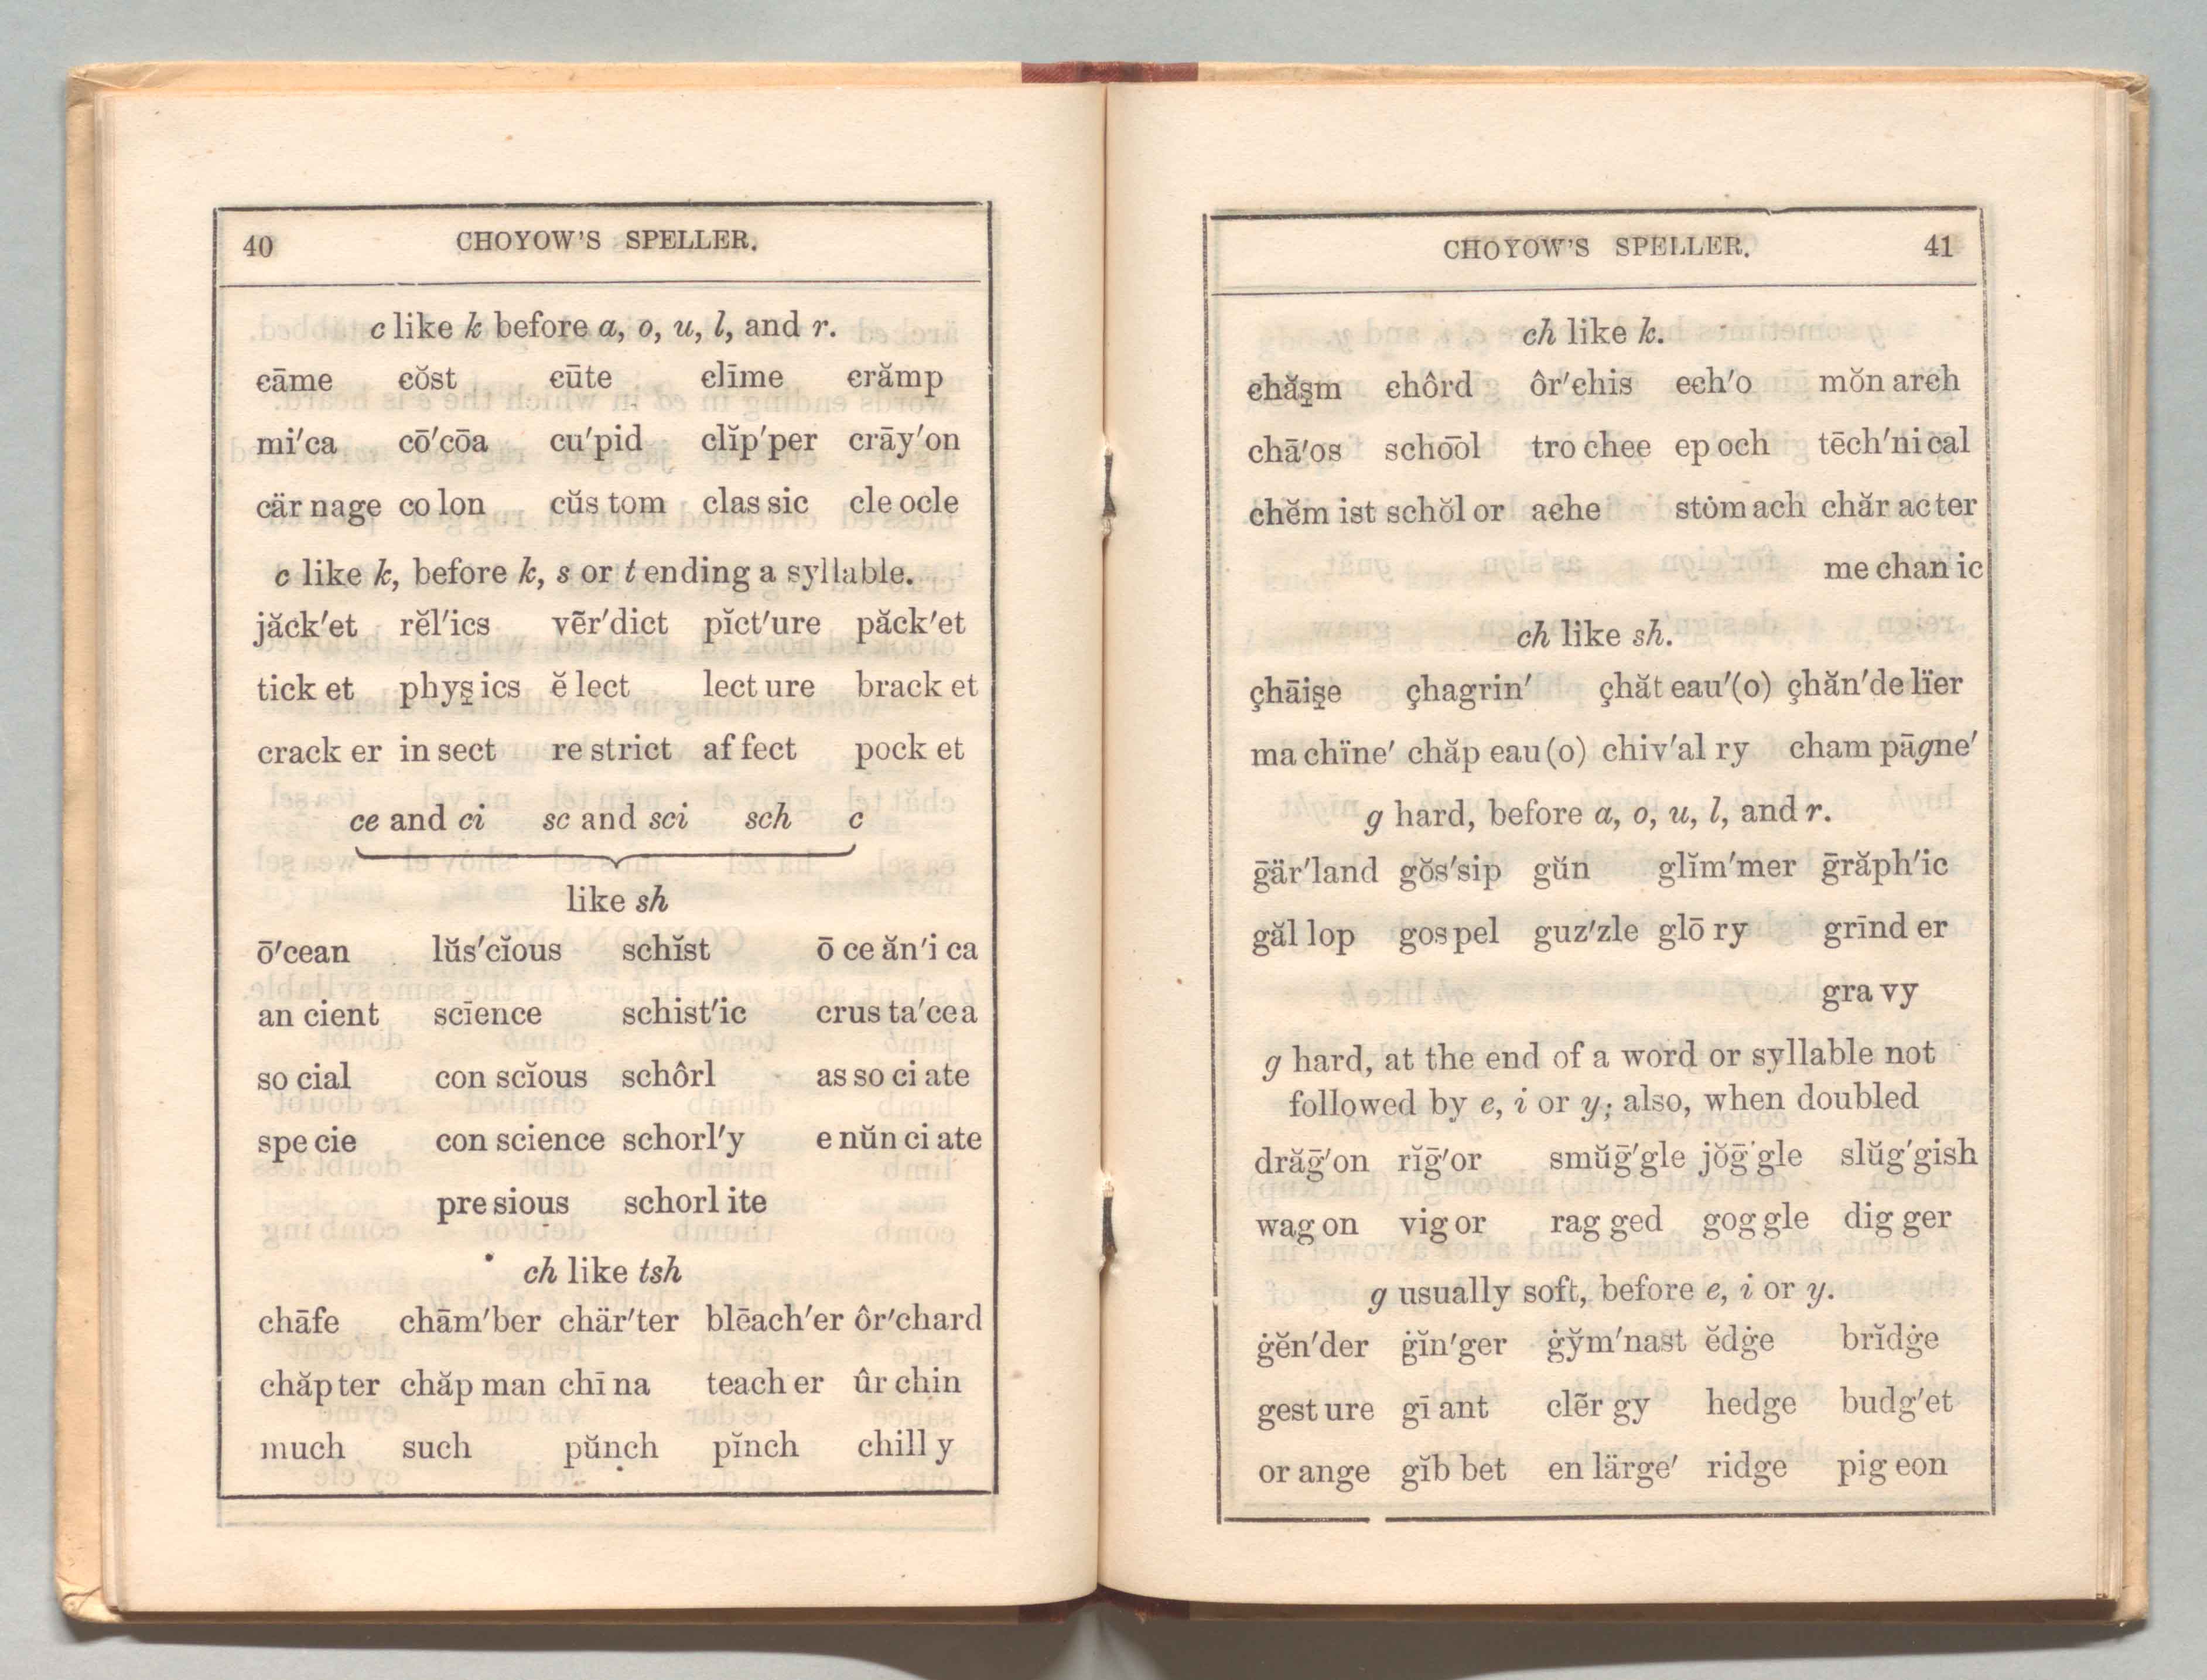 40 CHOYOW'S SPELLER.
c like k before a, o, u, l, and r.
єāme єŏst єūte єlīme єrămp
mi′ca cō′cōa cu′pid clĭp′per crāy′on
cär nage co lon cŭs tom clas sic cle ocle
c like k, before k, s or t ending a syllable.
jăck′et rĕl′ics vẽr′dict pĭct′ure păck′et
tick et phys̱ ics ĕ lect lect ure brack et
crack er in sect re strict af fect pock et
ce and ci sc and sci sch c
like sh
ō′cean lŭs′cĭous schĭst ō ce ăn′i ca
an cient scīence schist′ic crus ta′ce a
so cial con scĭous schôrl as so ci ate
spe cie con science schorl′y e nŭn ci ate
pre sious schorl ite
ch like tsh
chāfe chām′ber chär′ter blēach′er ôr′chard
chăp ter chăp man chī na teach er ûr chin
much such pŭnch pĭnch chill y
CHOYOW'S SPELLER. 41
ch like k.
єhăs̱m єhôrd ôr′єhis eєh′o mŏn arєh
chā′os schōōl tro chee ep och tēch′ni cal
chĕm ist schŏl or aєhe stȯm ach chăr ac ter
me chan ic
ch like sh.
çhāis̱e çhagrin′ çhăt eau′(o) çhăn′de lïer
ma chïne′ chăp eau (o) chiv′al ry cham pāgne′
g hard, before a, o, u, l, and r.
ḡär′land gŏs′sip gŭn glĭm′mer ḡrăph′ic
găl lop gos pel guz′zle glō ry grīnd er
gra vy
g hard, at the end of a word or syllable not
followed by e, i or y; also, when doubled
drăḡ′on rĭḡ′or smŭḡ′gle jŏḡ′gle slŭg′gish
wag on vig or rag ged gog gle dig ger
g usually soft, before e, i or y.
ġĕn′der ġĭn′ger ġy̆m′nast ĕdġe brĭdġe
gest ure gī ant clẽr gy hedge budg′et
or ange gĭb bet en lärge′ ridge pig eon